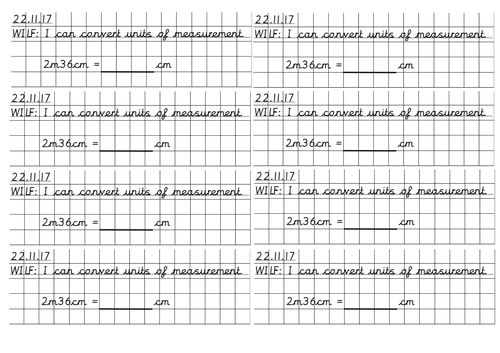 22.11.17
WILF: I can convert units of measurement
2m36cm = ________ cm
22.11.17
WILF: I can convert units of measurement
2m36cm = ________ cm
22.11.17
WILF: I can convert units of measurement
2m36cm = ________ cm
22.11.17
WILF: I can convert units of measurement
2m36cm = ________ cm
22.11.17
WILF: I can convert units of measurement
2m36cm = ________ cm
22.11.17
WILF: I can convert units of measurement
2m36cm = ________ cm
22.11.17
WILF: I can convert units of measurement
2m36cm = ________ cm
22.11.17
WILF: I can convert units of measurement
2m36cm = ________ cm